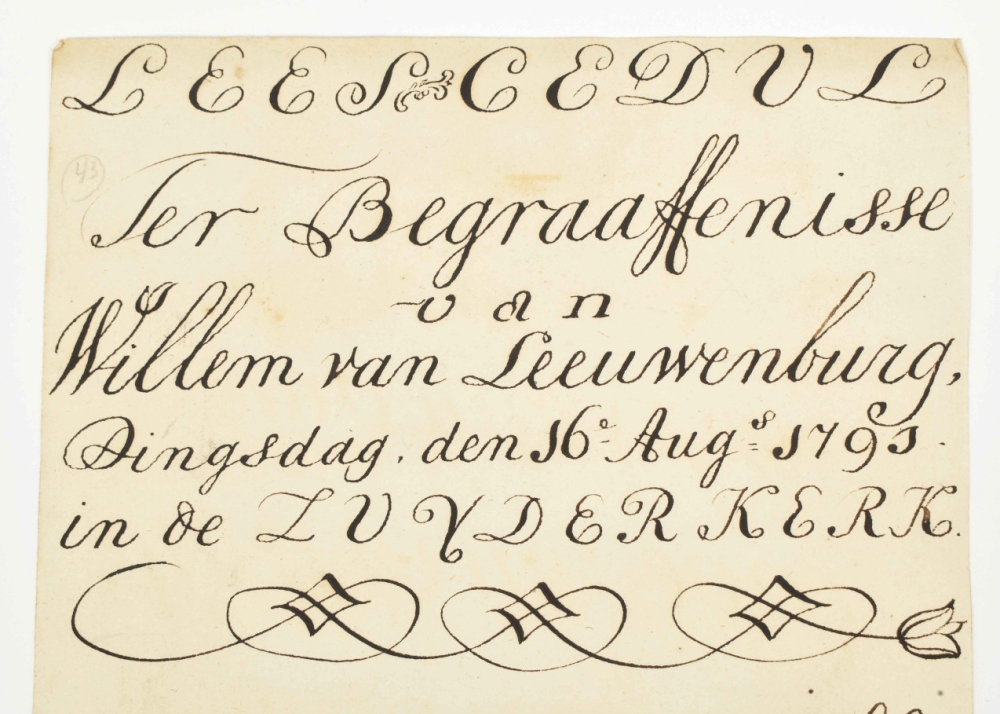 LEES CEDUL
43
Ter Begraaffenisse
van
Willem van Leeuwenburg,
Dingsdag, den 16e Augs 1791.
in de ZUYDERKERK.